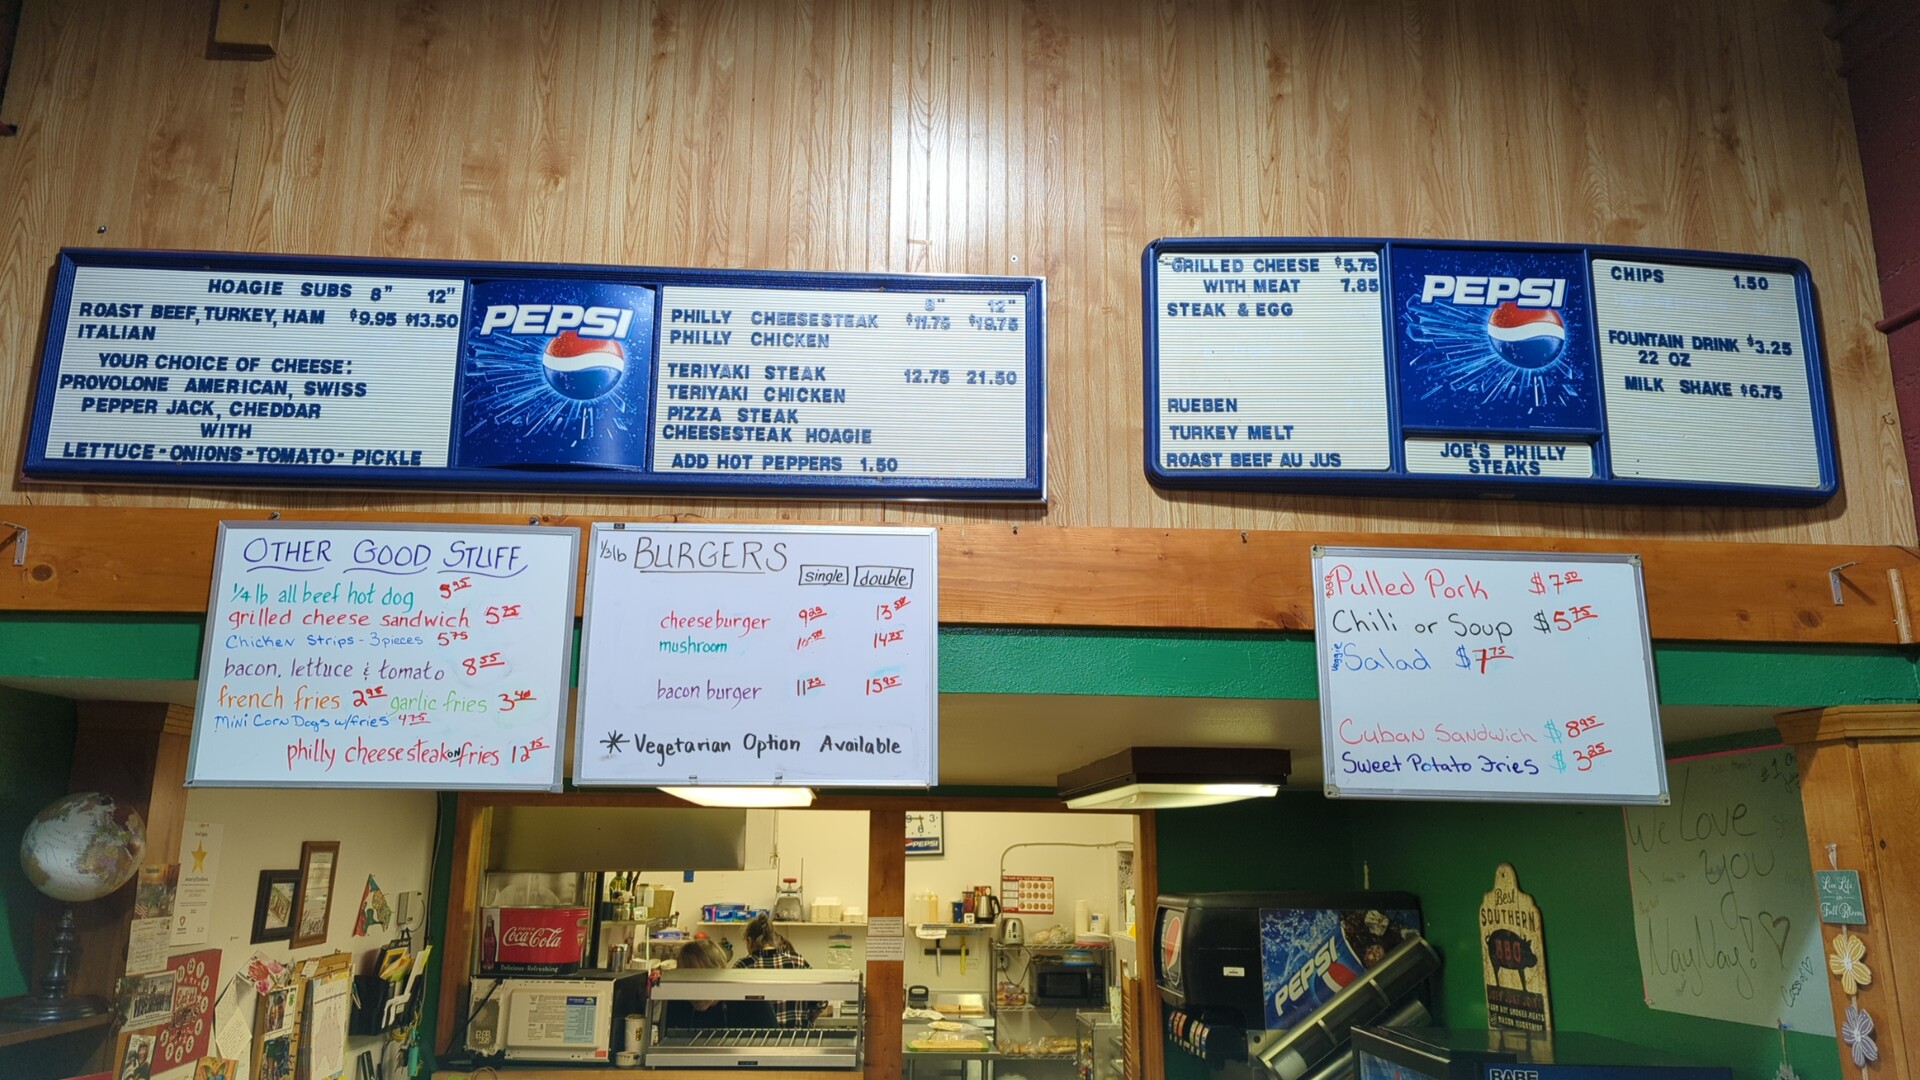 HOAGIE SUBS 8" 12"
ROAST BEEF, TURKEY, HAM $9.95 $13.50
ITALIAN
YOUR CHOICE OF CHEESE:
PROVOLONE AMERICAN, SWISS
PEPPER JACK, CHEDDAR
WITH
LETTUCE-ONIONS-TOMATO-PICKLE
PEPSI
8" 12"
PHILLY CHEESESTEAK $11.75 $19.75
PHILLY CHICKEN
TERIYAKI STEAK 12.75 21.50
TERIYAKI CHICKEN
PIZZA STEAK
CHEESESTEAK HOAGIE
ADD HOT PEPPERS 1.50
GRILLED CHEESE $5.75
WITH MEAT 7.85
STEAK & EGG
RUEBEN
TURKEY MELT
ROAST BEEF AU JUS
PEPSI
JOE'S PHILLY
STEAKS
CHIPS 1.50
FOUNTAIN DRINK $3.25
22 OZ
MILK SHAKE $6.75
OTHER GOOD STUFF
1/4 lb all beef hot dog 5.95
grilled cheese sandwich 5.75
Chicken Strips - 3 pieces 5.75
bacon, lettuce & tomato 8.55
french fries 2.95 garlic fries 3.40
Mini Corn Dogs w/fries 4.75
philly cheesesteak on fries 12.75
1/3 lb BURGERS
single double
cheeseburger 9.29 13.50
mushroom
bacon burger 11.75 15.95
* Vegetarian Option Available
BBQ Pulled Pork $7.50
Chili or Soup $5.75
Veggie Salad $7.75
Cuban Sandwich $8.95
Sweet Potato Fries $3.25
We Love
You
NayNay!
Live Life
in
Full Bloom
Coca-Cola
Delicious-Refreshing
PEPSI
PEPSI
Best
SOUTHERN
BBQ
BABE